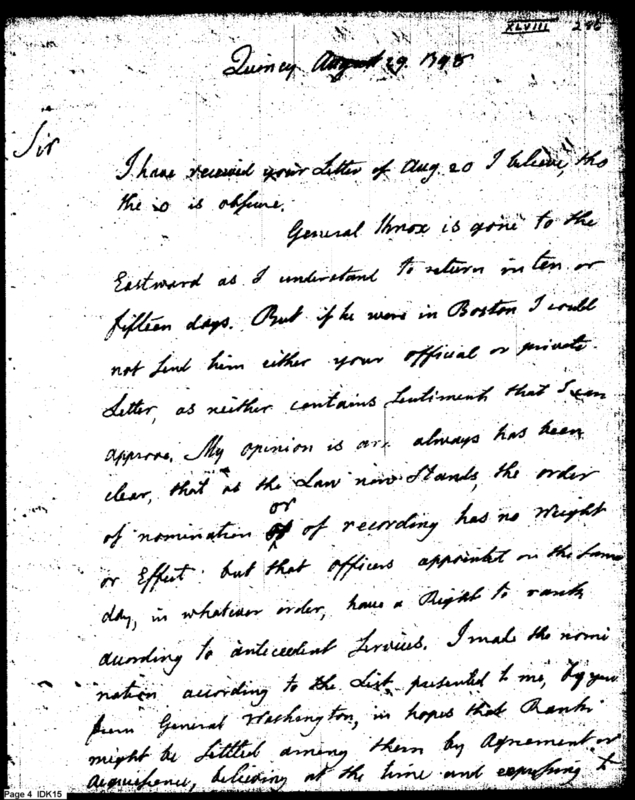 XLVIII 286
Quincy August 29. 1798
Sir
I have received your Letter of Aug. 20 I believe, tho
the 0 is obscure.
General Knox is gone to the
Eastward as I understand to return in ten or
fifteen days. But if he were in Boston I could
not send him either your official or private
Letter, as neither contains Sentiments that I can
approve. My opinion is and always has been
clear, that as the Law now Stands, the order
or
of nomination of of recording has no weight
or Effect but that officers appointed on the same
day, in whatever order, have a Right to rank
according to antecedent Services. I made the nomi
nation according to the List presented to me, by you
from General Washington, in hopes that Rank
might be settled among them by Agreement or
Acquiescence, believing at the time and expressing to
Page 4 IDK15